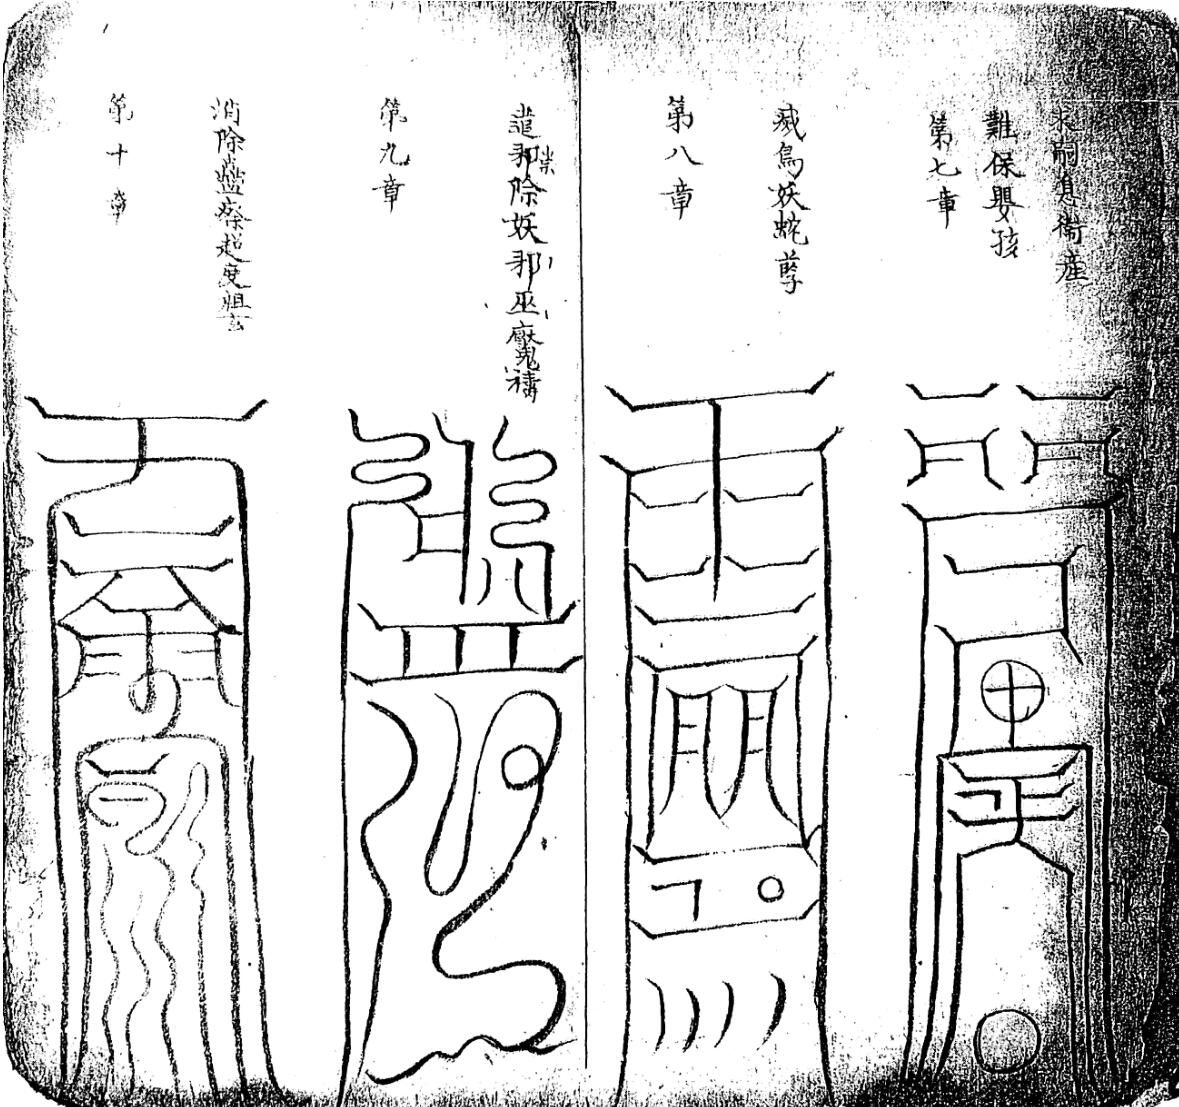 求嗣息衛產
難保嬰孩
第七章
滅鳥妖蛇孽
第八章
遣邪祟除妖邪巫魔禱
第九章
消除蠱瘵超度祖玄
第十章